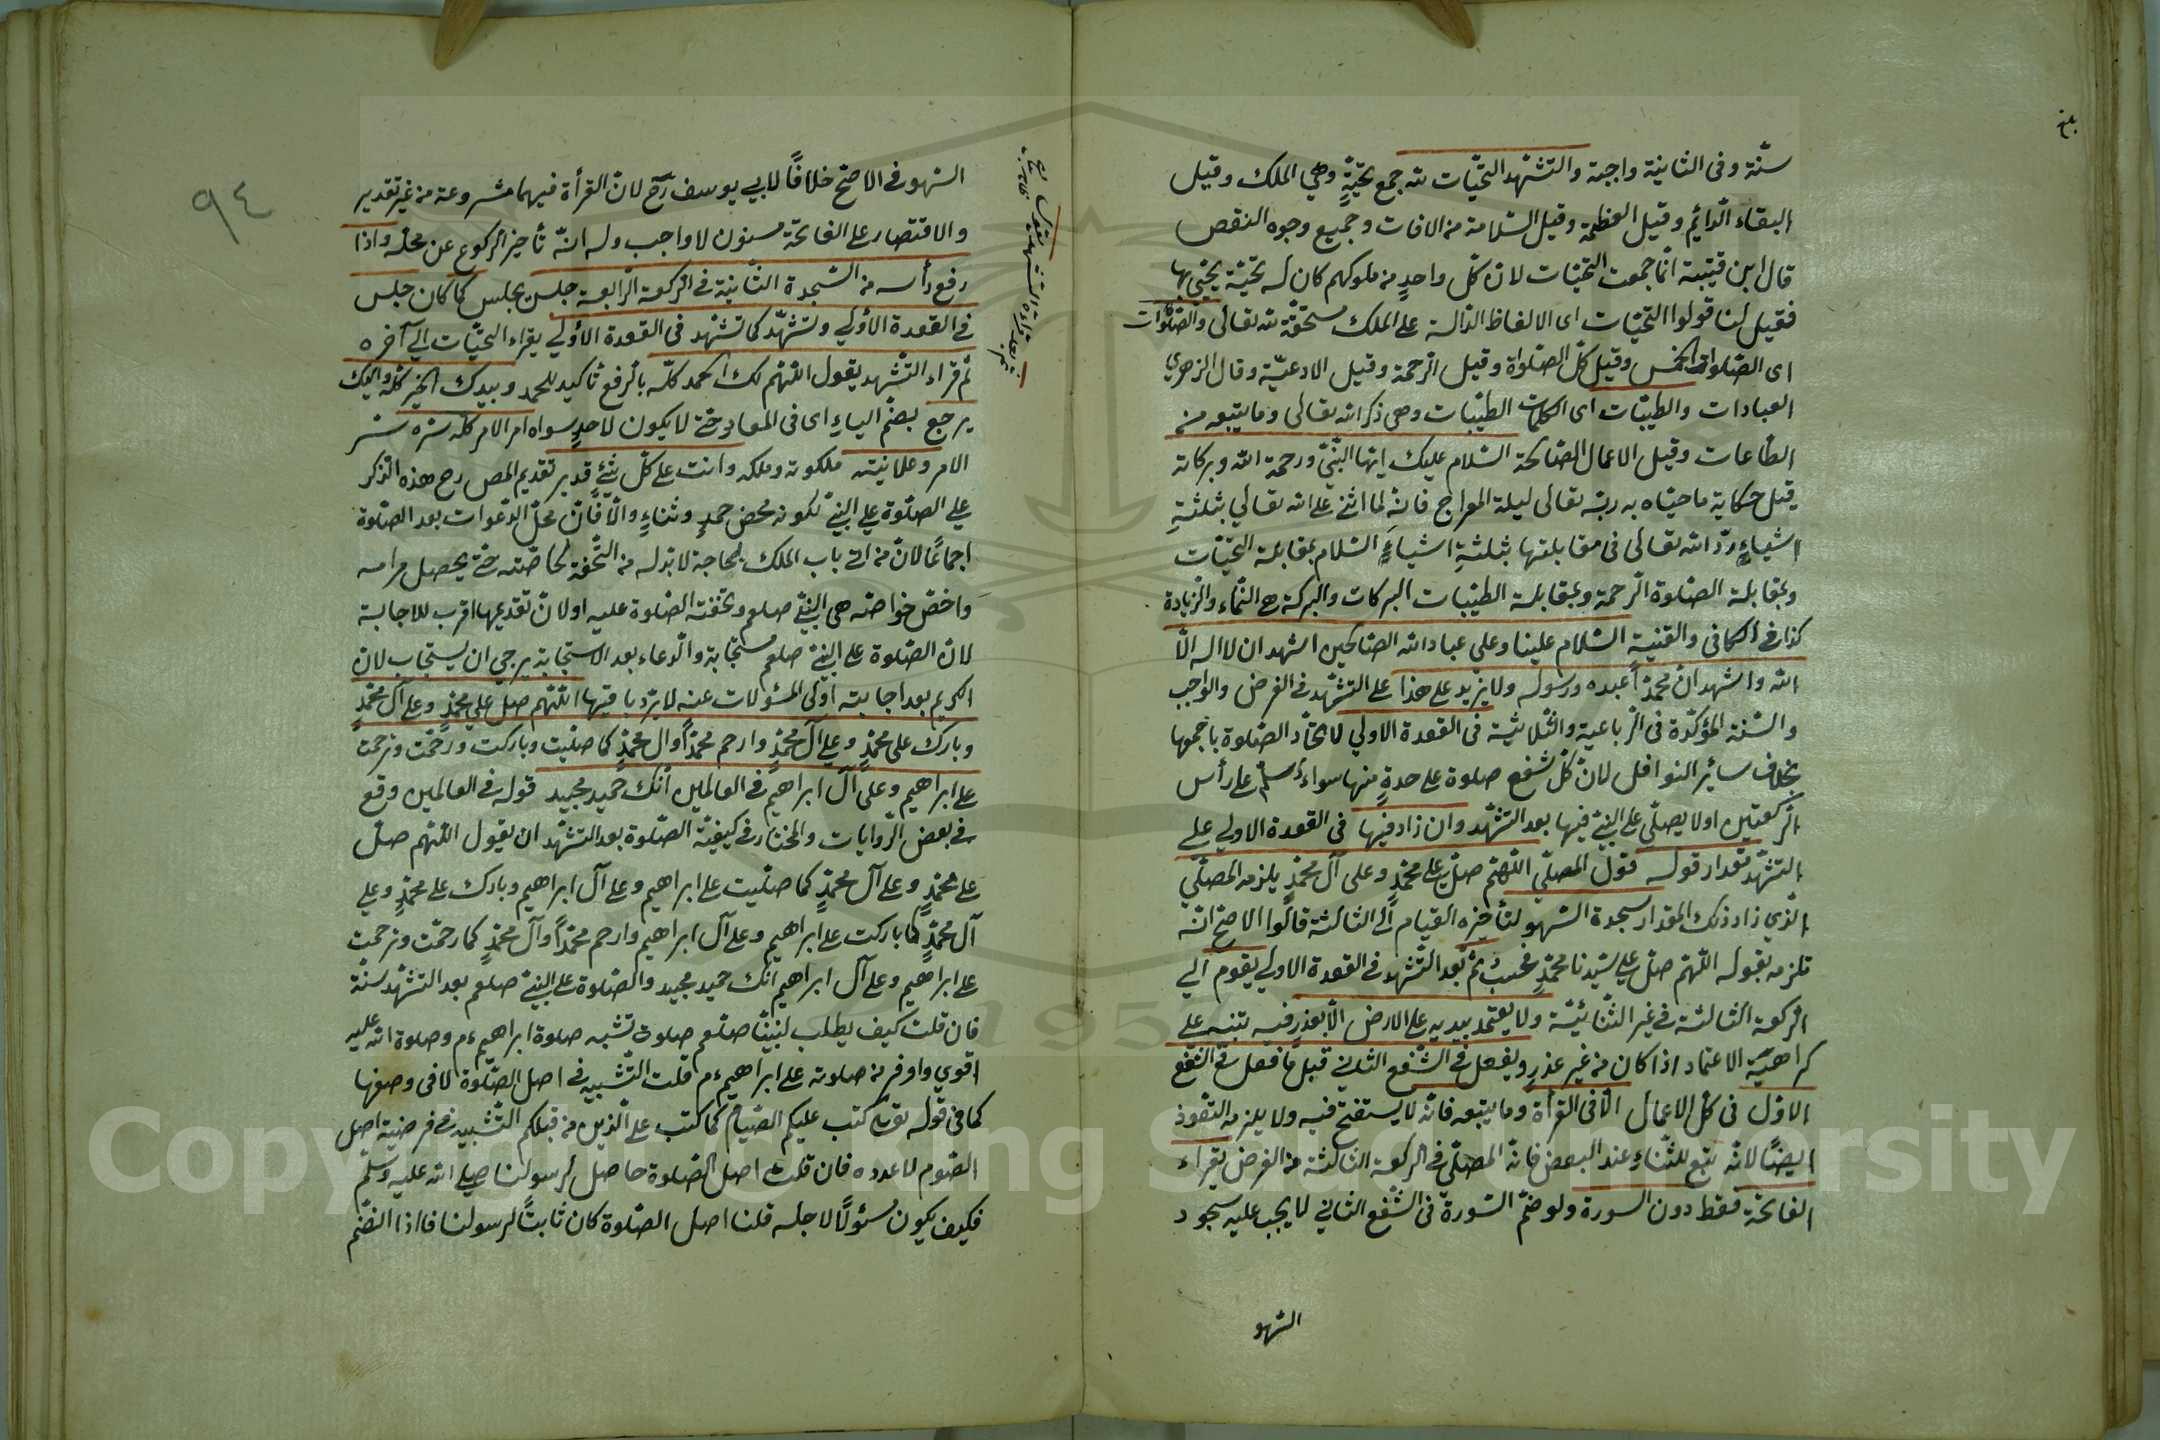 سنّة وفى الثانية واجبة والتشهّد التحيّات لله جمع تحيّةٍ وهي الملك وقيل
البقاء الدايم وقيل العظمة وقيل السّلامة من الافات وجميع وجوه النقص
قال ابن قتيبة انّما جمعت التحيّات لانّ كلّ واحدٍ من ملوكهم كان له تحيّة يحيّى بها
فقيل لنا قولوا التحيّات اى الالفاظ الدّالة على الملك مستحقّة لله تعالى والصّلوات
اى الصّلوات الخمس وقيل كلّ الصّلواة وقيل الرّحمة وقيل الادعيّة وقال الزهري
العبادات والطيّبات اى الكلمات الطيّبات وهى ذكر الله تعالى وما يتبعه من
الطّاعات وقيل الاعمال الصّالحة السّلام عليك ايّها النّبيّ ورحمة الله وبركاته
قيل حكاية ما حيّاه به ربّه تعالى ليلة المعراج فانّه لما اثنى على الله تعالي بثلثةِ
اشياءٍ ردّ الله تعالى فى مقابلتها بثلثةِ اشياءٍ السّلام بمقابلة التحيّات
وبمقابلة الصّلوة الرّحمة وبمقابلة الطيّبات البركات والبركة هى النّماء والزّيادة
كذا فى الكافى والقنية السّلام علينا وعلى عباد الله الصّالحين اشهد ان لا اله الّا
الله واشهد انّ محمّداً عبده ورسوله ولا يزيد على هذا على التشهّد فى الفرض والواجب
والسّنة المؤكّدة فى الرّباعية والثّلاثية فى القعدة الاولي لاتحّاد الصّلوة باجمعها
بخلاف سائر النوافل لانّ كلّ شفع صلوة على حدةٍ منها سواء سلّم على رأس
الرّكعتين او لا يصلّى على النّبيّ فيها بعد التشهّد وان زاد فيها فى القعدة الاولي على
التشهّد مقدار قوله قول المصلّي اللّهمّ صلّ على محمّدٍ وعلى آل محمّدٍ يلزمه المصلّي
الّذي زاد ذلك المقدار سجدة السّهو لتأخيره القيام الى الثالثة قالوا الاصحّ انّه
تلزمه بقوله اللّهمّ صلّ على سيّدنا محمّدٍ فحسب ثمّ بعد التّشهّد فى القعدة الاولي يقوم الي
الرّكعة الثالثة فى غير الثّنائيّة ولا يعتمد بيديه على الارض الّا بعذرٍ فيه تنبيه على
كراهيّة الاعتماد اذا كان من غير عذرٍ ويفعل فى الشّفع الثاني قبل ما فعل فى الشّفع
الاوّل فى كلّ الاعمال الّا فى القرأة وما يتبعه فانّه لا يستفتح فيه ولا يلزمه التعّوذ
ايضًا لانّه تبع للثّناءِ عند البعض فانّ المصلّي فى الرّكعة الثالثة من الفرض يقراء
الفاتحة فقط دون السورة ولو ضمّ السّورة فى الشّفع الثاني لا يجب عليه سجود
السّهو
٩٤
السّهو فى الاصحّ خلافًا لابي يوسف رح لانّ القرأة فيهما مشروعة من غير تقدير
والاقتصار على الفاتحة مسنون لا واجب وله انّه تأخير الركوع عن محلّه واذا
رفع رأسه من السّجدة الثّانية فى الرّكعة الرّابعة جلس يجلس كما كان جلس
فى القعدة الأولي وتشهّد كما تشهّد فى القعدة الأولي يقراء التحيّات الي آخره
ثم قراء التّشهد يقول اللّهم لك الحمد كلّه بالرفع تأكيد للحمد وبيدك الخير كلّه واليك
يرجع بضمّ الياءِ اى فى المعاد حتّى لا يكون لاحدٍ سواه امر الامر كلّه سرّه سرّ
الامر وعلانيته ملكوته وملكه وانت على كلّ شيءٍ قدير تقديم المص رح هذه الذّكر
على الصّلوة على النّبيّ لكونه محض حمدٍ وثناءٍ والّا فانّ محلّ الدّعوات بعد الصّلوة
اجماعًا لانّ من اتى باب الملك لحاجة لا بدّ له من التّحفة لخاصّته حتّى يحصل مرامه
واخصّ خواصّه هى النّبيّ صلعم وتحفته الصّلوة عليه او لانّ تقديمها اقرب للاجابة
لانّ الصّلوة على النّبيّ صلعم مستجابة والدّعاء بعد الاستجابة يرجي ان يستجاب لانّ
الكريم بعد اجابته اولى المسئولات عنه لا يردّ باقيها اللّهم صلّ على محمّدٍ وعلى آل محمّدٍ
وبارك على محمّدٍ وعلى آل محمّدٍ وارحم محمّداً وآل محمّدٍ كما صلّيت وباركت ورحّمت وترحّمت
على ابراهيم وعلى آل ابراهيم فى العالمين انّك حميد مجيد قوله فى العالمين وقع
فى بعض الرّوايات والمختار فى كيفيّة الصّلوة بعد التشهّد ان يقول اللّهم صلّ
على محمّدٍ وعلى آل محمّدٍ كما صلّيت على ابراهيم وعلى آل ابراهيم وبارك على محمّدٍ وعلى
آل محمّدٍ كما باركت على ابراهيم وعلى آل ابراهيم وارحم محمّداً وآل محمّدٍ كما رحمّت وترحمّت
على ابراهيم وعلى آل ابراهيم انّك حميد مجيد والصّلوة على النّبيّ صلعم بعد التشهّد سنّة
فان قلت كيف يطلب لنبيّنا صلعم صلوة تشبه صلوة ابراهيم ءم وصلوة الله عليه
اقوي واوفر من صلوته على ابراهيم ءم قلت التّشبيه فى اصل الصّلوة لا فى وصفها
كما فى قوله تعالى كتب عليكم الصّيام كما كتب على الّذين من قبلكم التّشبيه فى فرضية اصل
الصّوم لا عدده فان قلت اصل الصّلوة حاصل لرسولنا صلى الله عليه وسلّم
فكيف يكون مسئولًا لاجله قلنا اصل الصّلوة كان ثابتاً لرسولنا فاذا انضمّ
Copyright © King Saud University